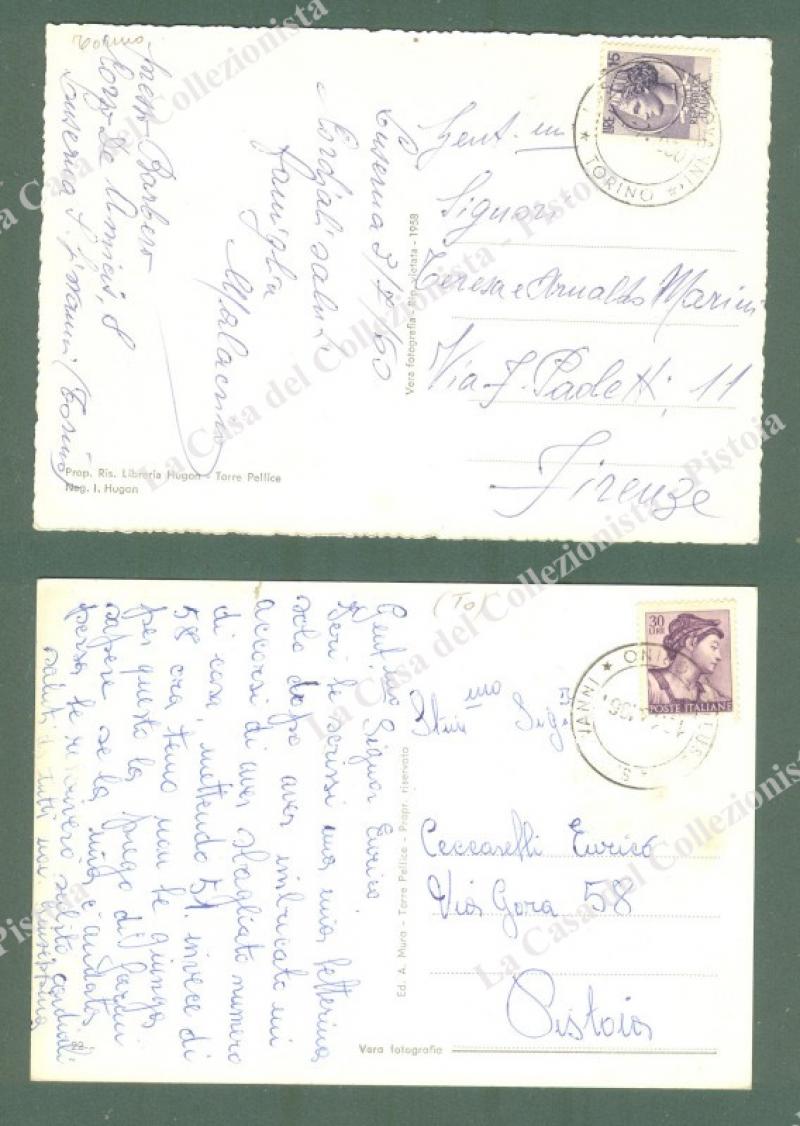 Torino
Barbero
Corso De Amicis, 8
Luserna S. Giovanni (Torino)
Luserna 9/5/60
Cordiali saluti
famiglia
Prop. Ris. Libreria Hugon - Torre Pellice
Neg. I. Hugon
Vera fotografia - Rip. vietata - 1958
LIRE 15
REPUBBLICA ITALIANA
TORINO
Gent.mi
Signori
Teresa e Arnaldo Marini
Via F. Paoletti, 11
Firenze
(To)
Gent.mo Signor Enrico
Ieri le scrissi una mia letterina
solo dopo aver imbucato mi
accorsi di aver sbagliato numero
di casa, mettendo 51. invece di
58 ora temo non le giunga
per questo la prego di farmi
sapere se la mia è andata
persa le riscriverò subito cordiali
saluti da tutti noi Giuseppina
22.
Ed. A. Mura - Torre Pellice - Propr. riservata
Vera fotografia
30 LIRE
POSTE ITALIANE
VANNI
Ill.mo Sig.
Ceccarelli Enrico
Via Gora 58
Pistoia
La Casa del Collezionista - Pistoia